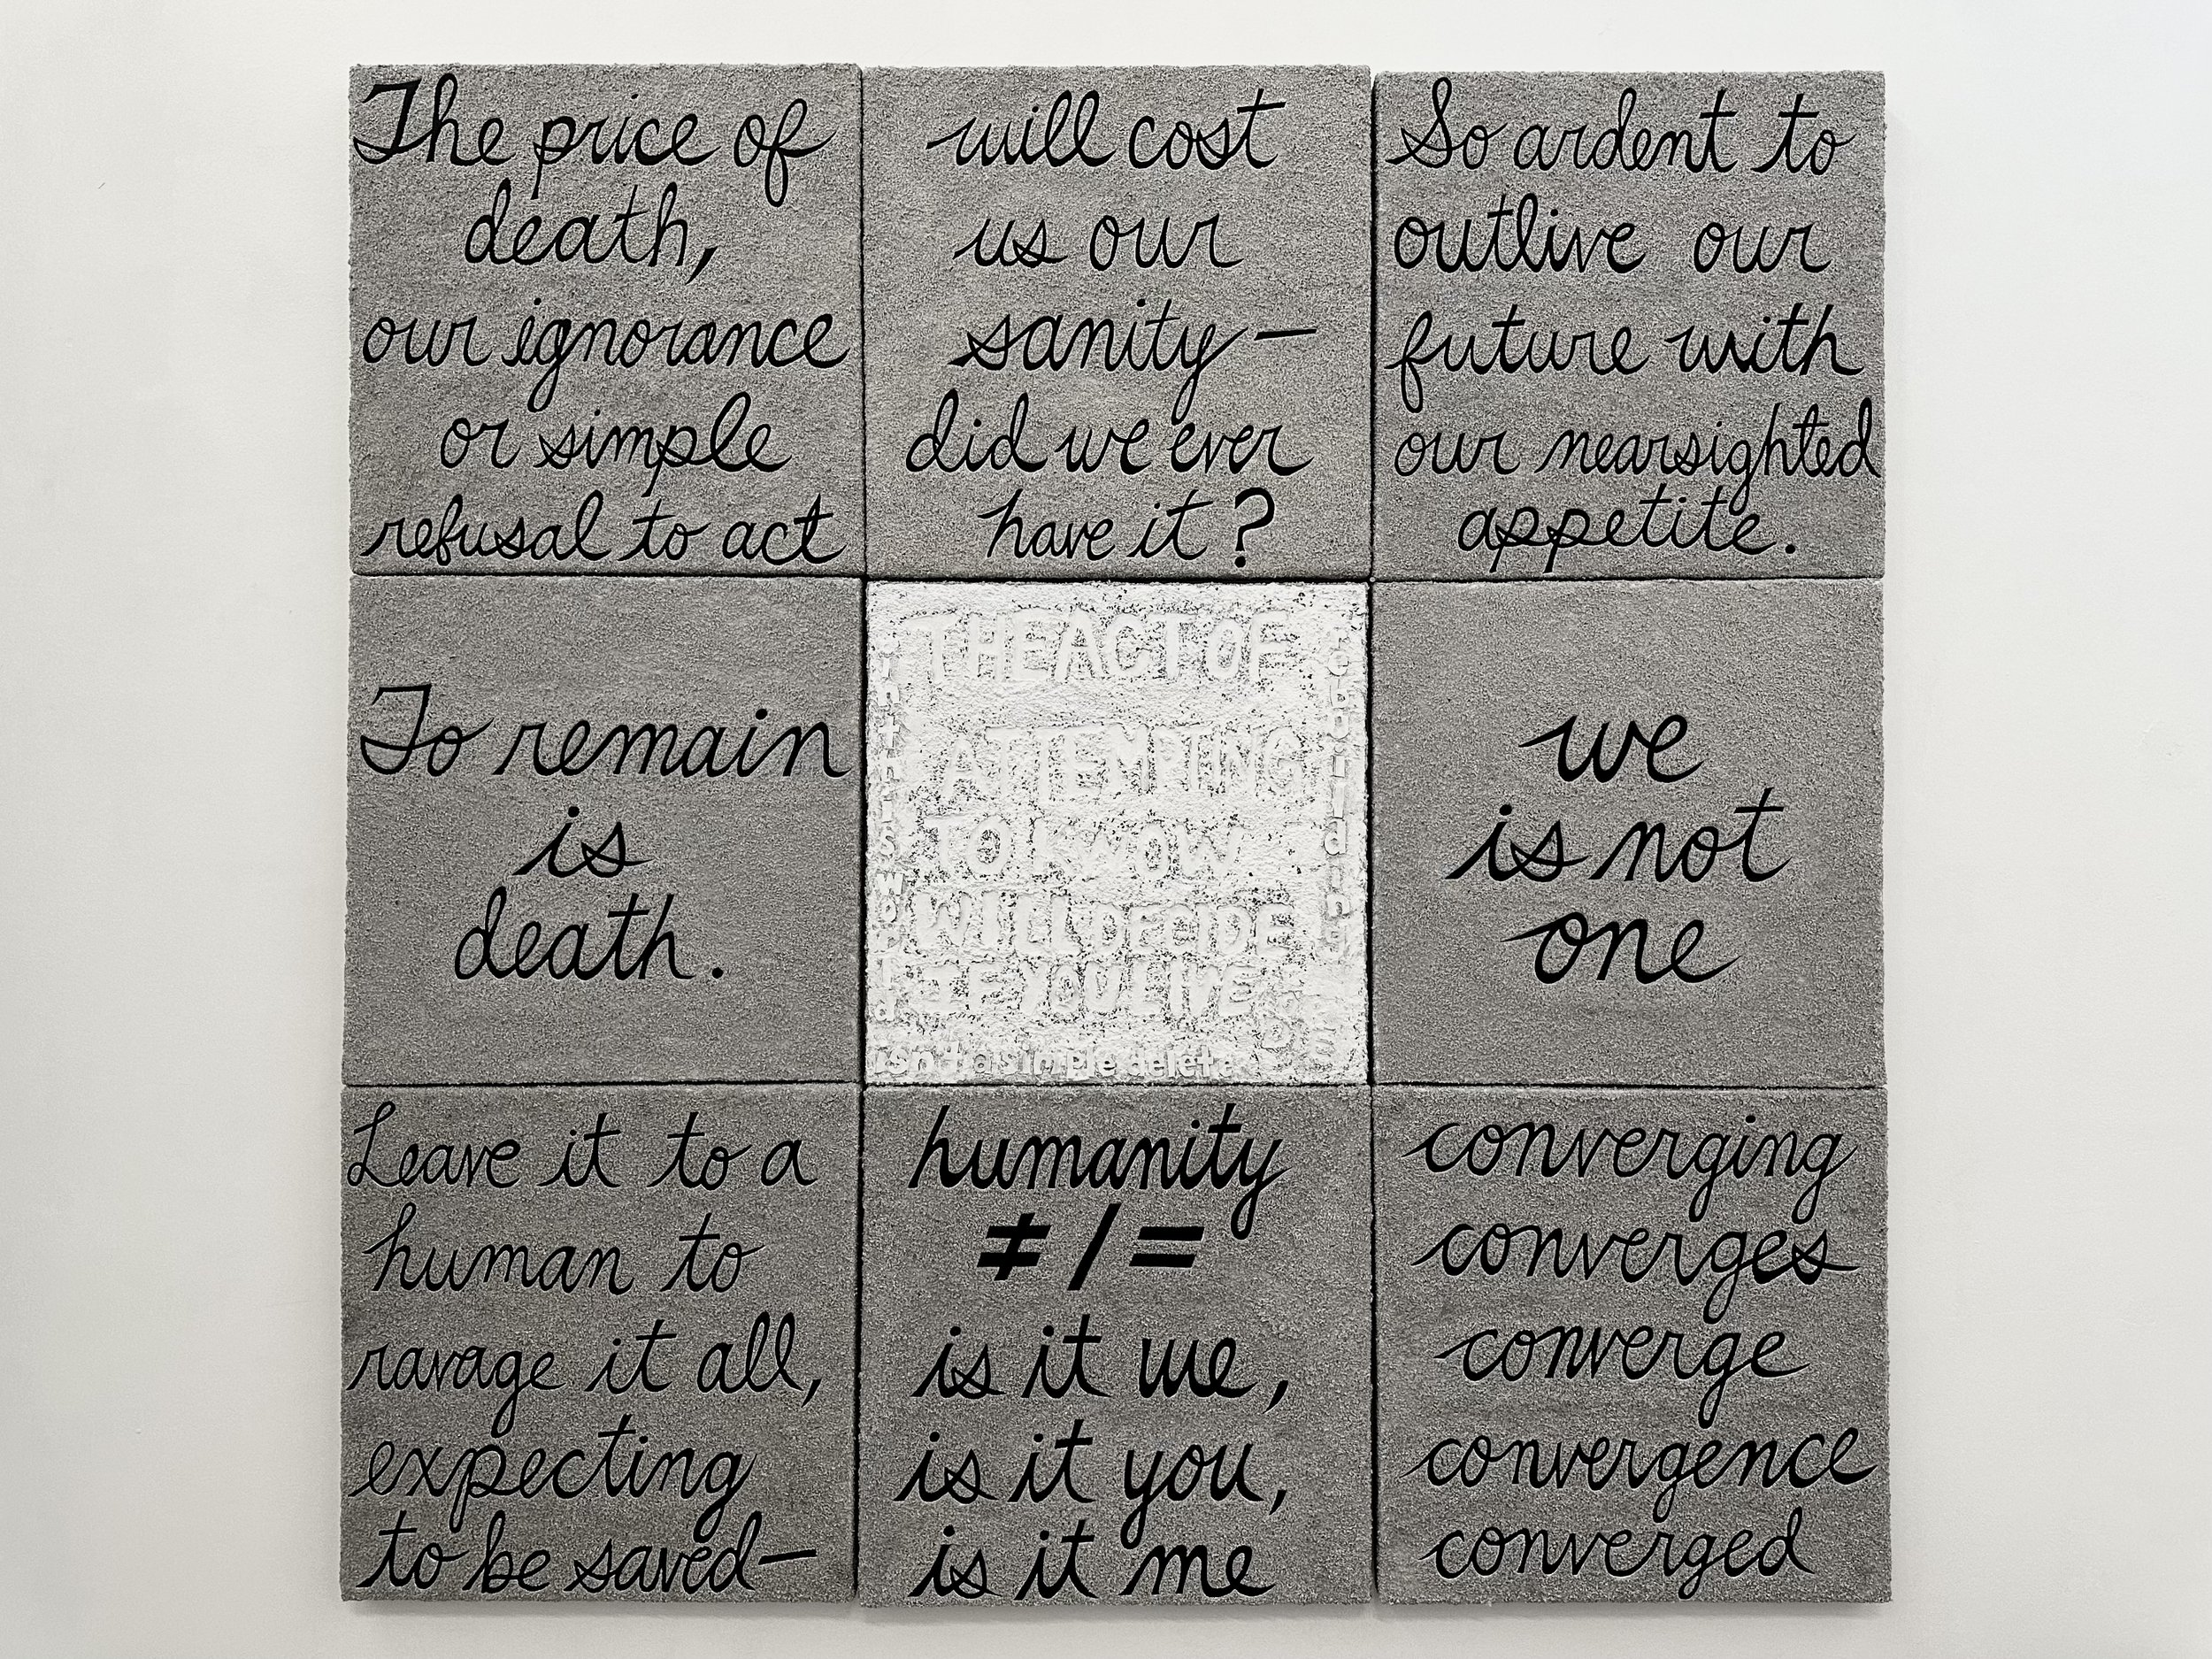 The price of
death,
our ignorance
or simple
refusal to act
will cost
us our
sanity—
did we ever
have it?
So ardent to
outlive our
future with
our nearsighted
appetite.
To remain
is
death.
THE ACT OF
ATTEMPTING
TO KNOW
WILL DECIDE
IF YOU LIVE
rebuilding
in this world
isn't a simple delete
we
is not
one
Leave it to a
human to
ravage it all,
expecting
to be saved—
humanity
≠/=
is it we,
is it you,
is it me
converging
converges
converge
convergence
converged